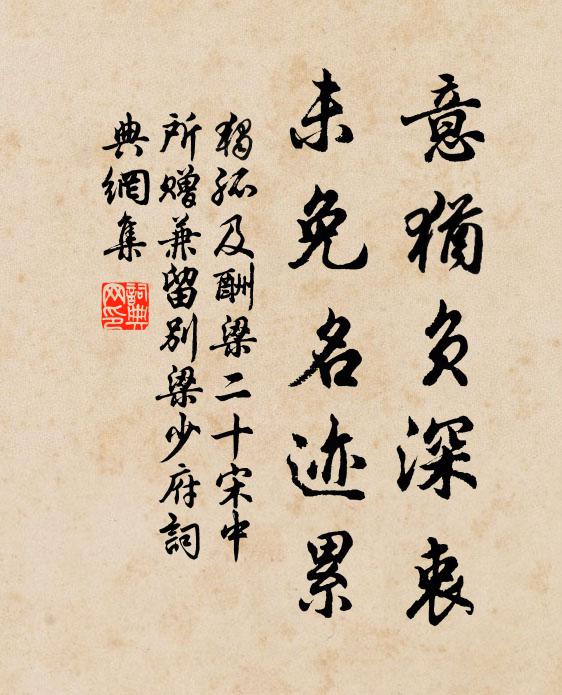 意犹负深衷
未免名迹累
独孤及酬梁二十宋中
所赠兼留别梁少府詞
典網集
詞典
网印